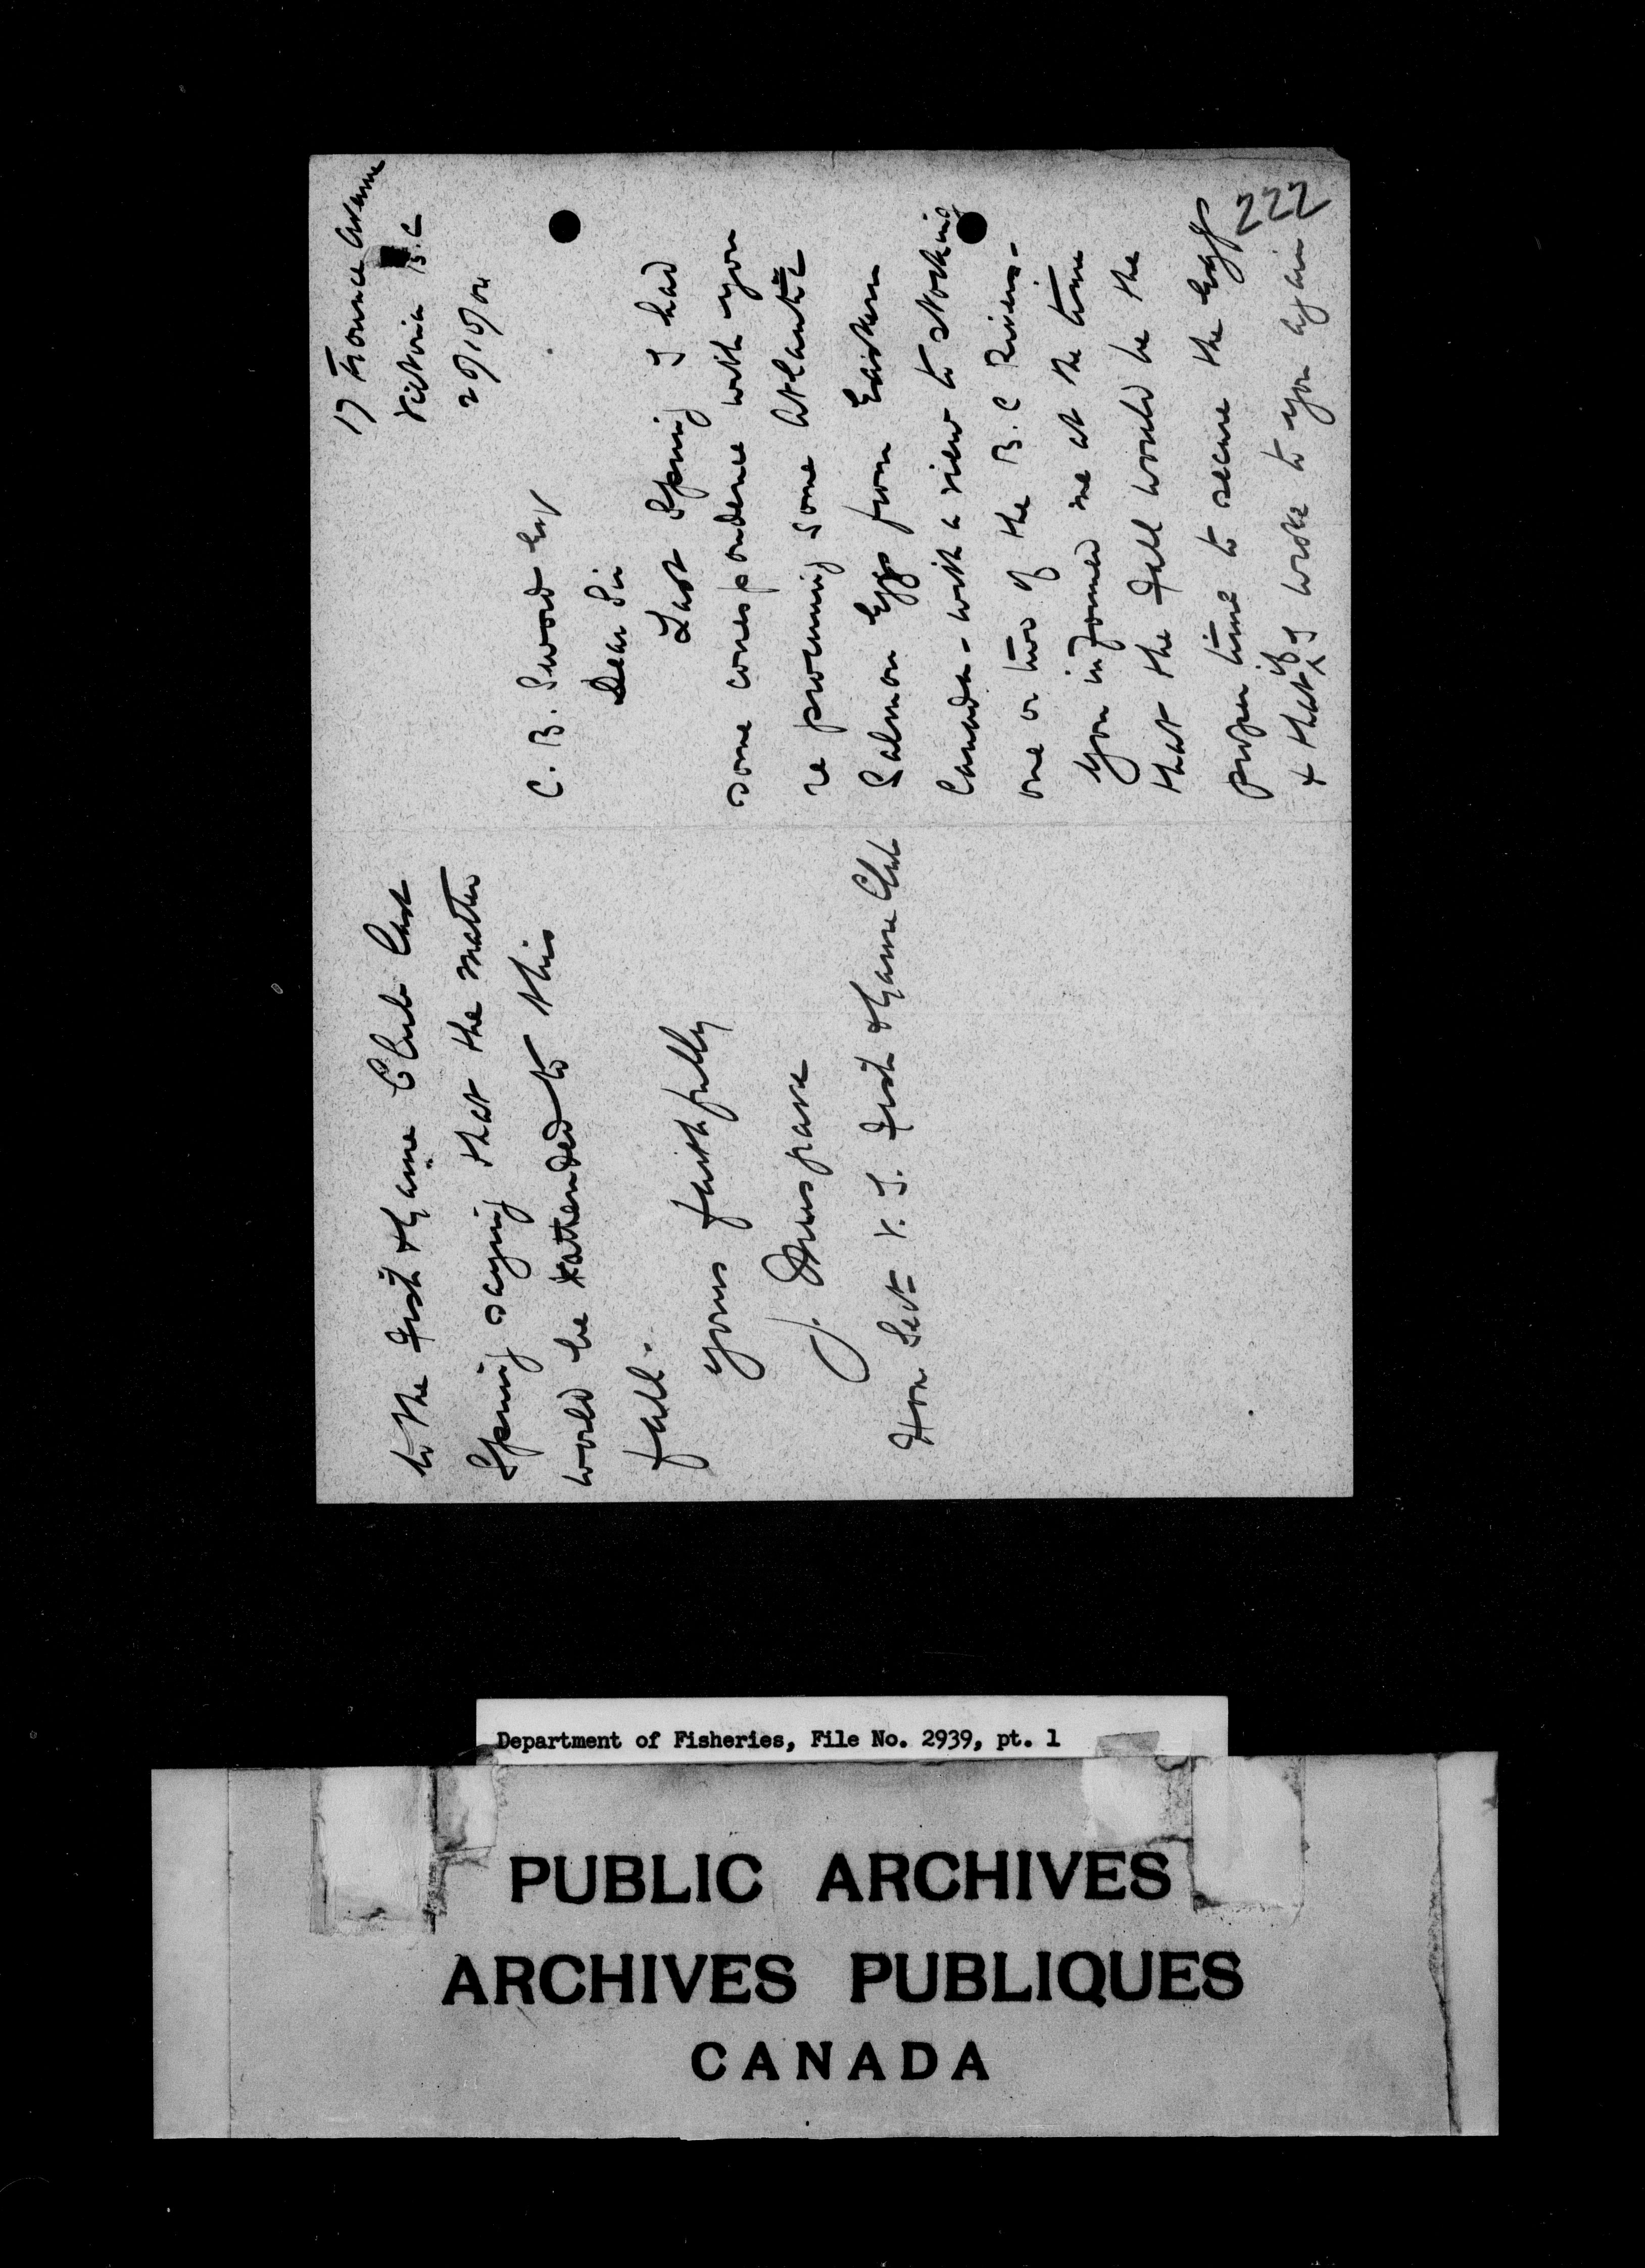 222
17 Trounce Avenue
Victoria B.C
C. B. Sword Esq
Dear Sir
Last Spring I had
some correspondence with you
re procuring some Atlantic
Salmon Eggs from Eastern
Canada - with a view to stocking
one or two of the B.C Rivers -
you informed me at the time
that the Fall would be the
proper time to secure the Eggs
& that if I wrote to you again
to the Fish & Game Club last
Spring saying that the matter
would be attended to this
fall.
Yours faithfully
J. Musgrave
Hon Sect V. I. Fish & Game Club
Department of Fisheries, File No. 2939, pt. 1
PUBLIC ARCHIVES
ARCHIVES PUBLIQUES
CANADA